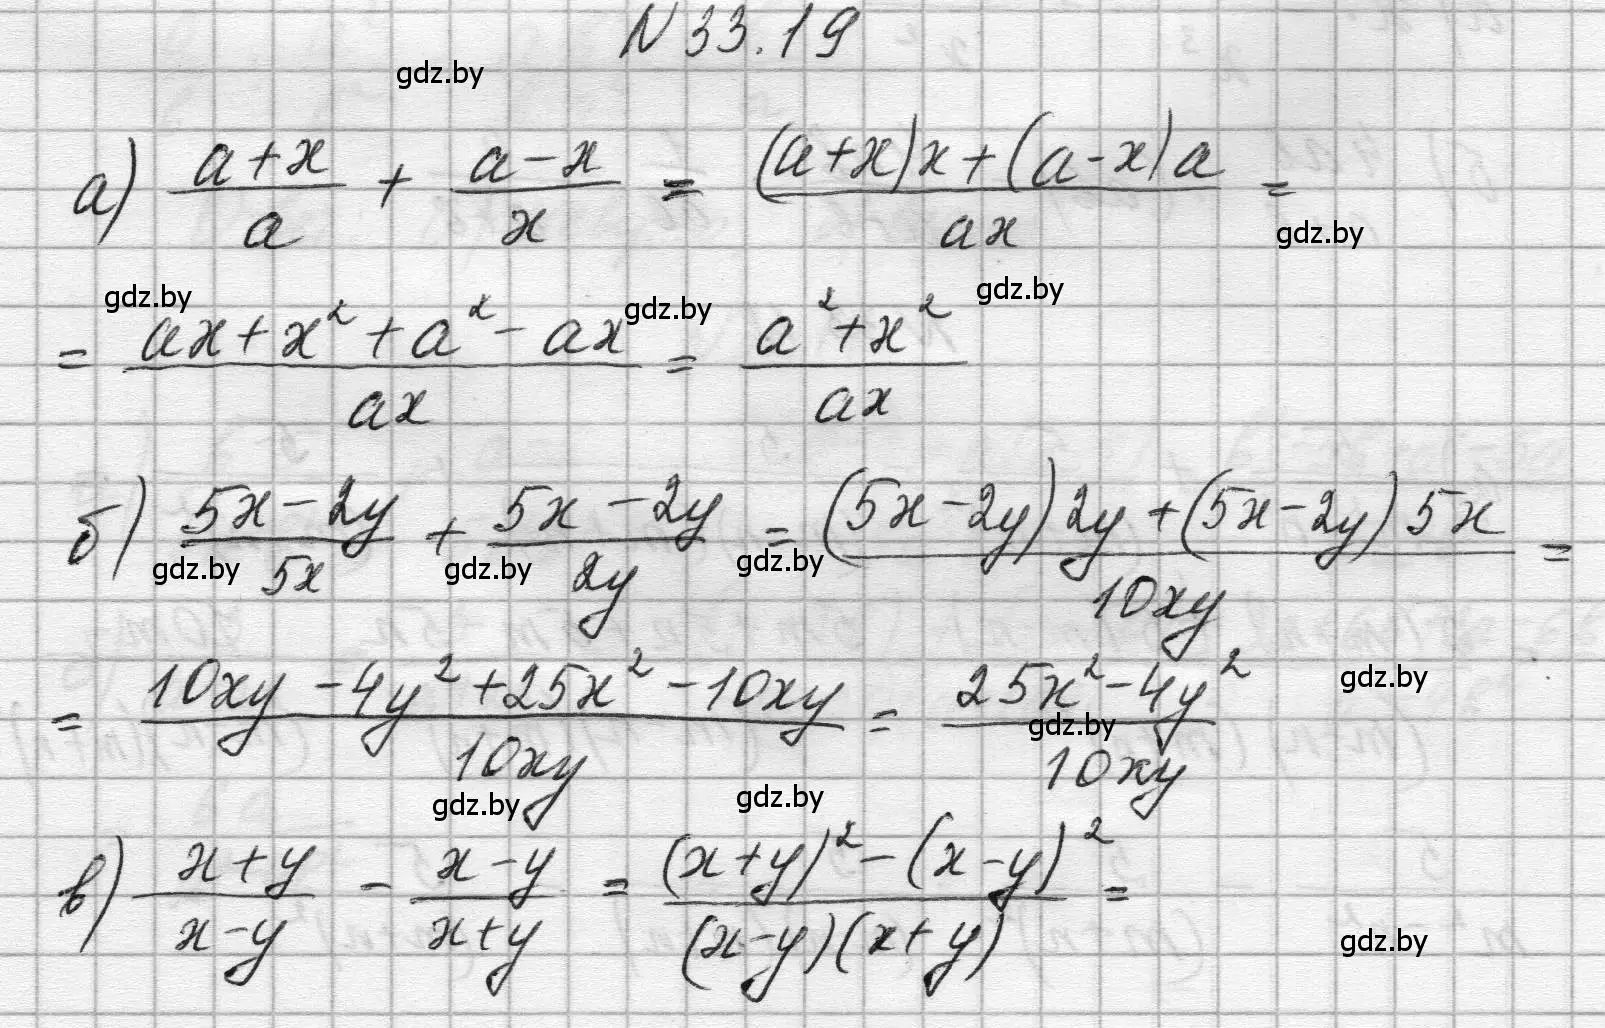 N 33.19
gdz.by
а) (a+x)/a + (a-x)/x = ((a+x)x+(a-x)a)/(ax) =
gdz.by
gdz.by gdz.by gdz.by
= (ax+x²+a²-ax)/(ax) = (a²+x²)/(ax)
б) (5x-2y)/(5x) + (5x-2y)/(2y) = ((5x-2y)2y+(5x-2y)5x)/(10xy) =
gdz.by gdz.by gdz.by
= (10xy-4y²+25x²-10xy)/(10xy) = (25x²-4y²)/(10xy)
gdz.by
gdz.by
gdz.by gdz.by
в) (x+y)/(x-y) - (x-y)/(x+y) = ((x+y)²-(x-y)²)/((x-y)(x+y)) =
gdz.by